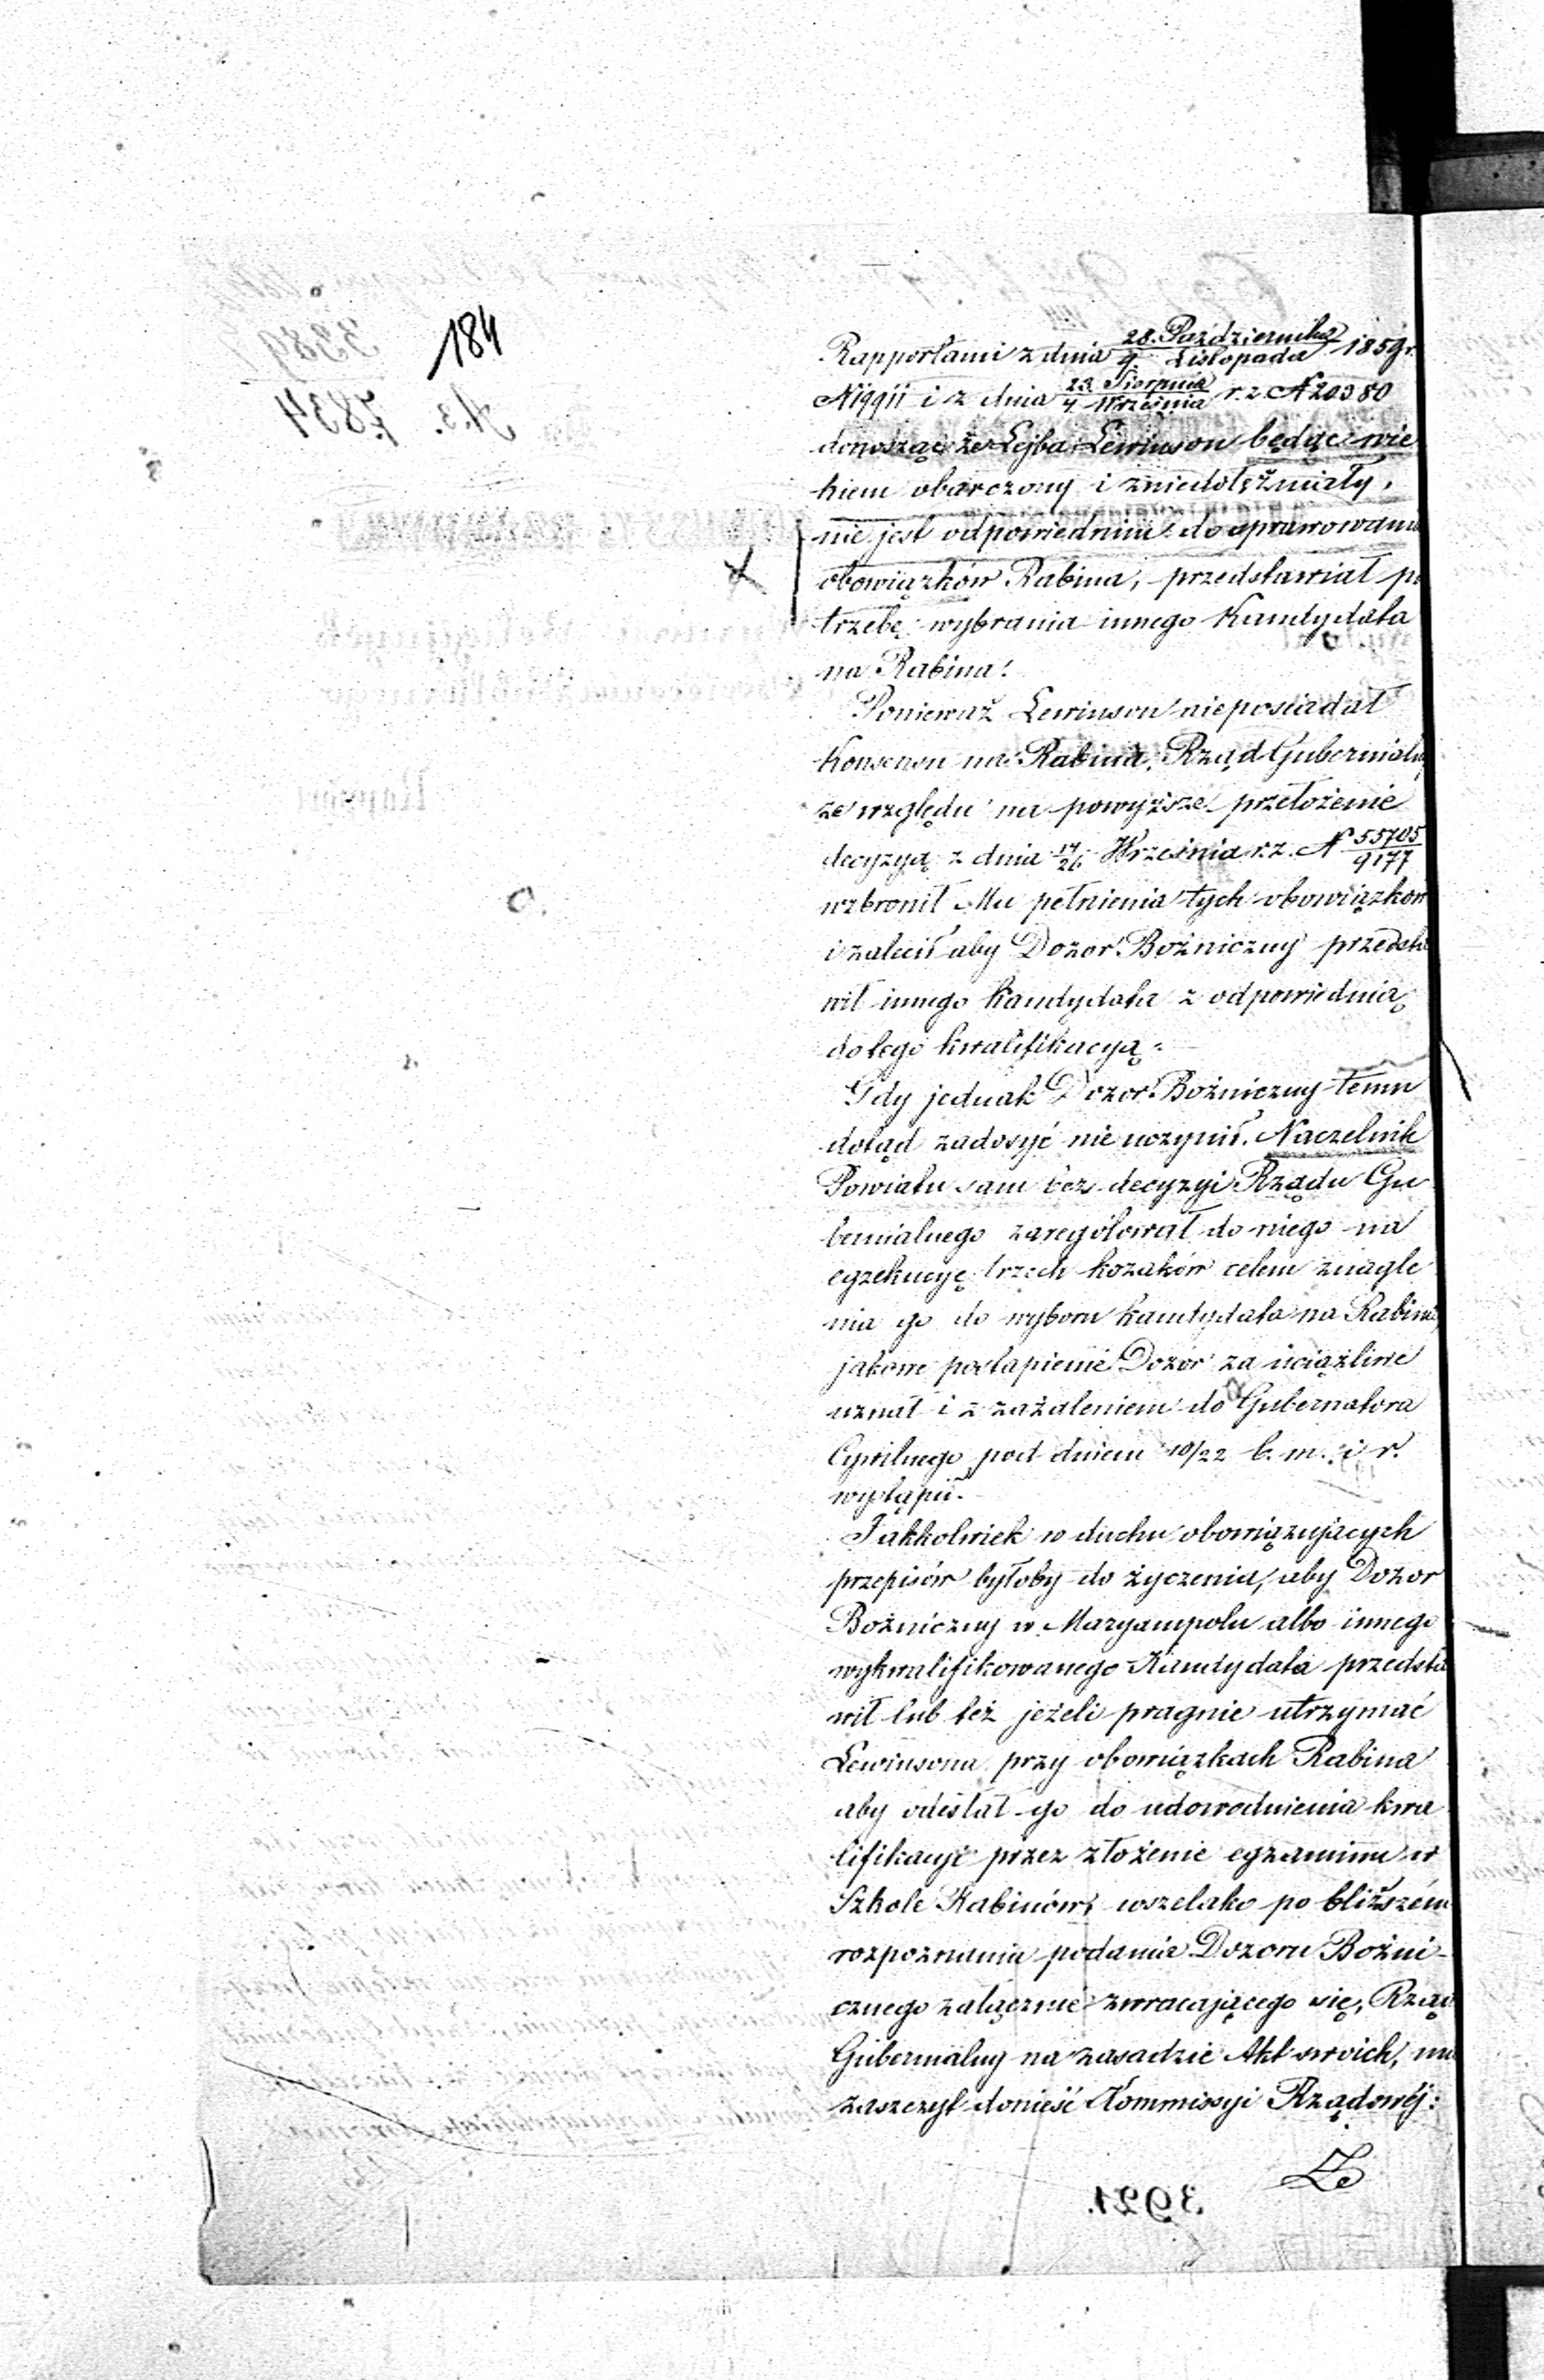 184
Rapportami z dnia 28. Października/9 Listopada 1859 r.
N 19911 i z dnia 23 Sierpnia/4 Września r. z. N 20380
donosząc że Lejba Lewinson będąc wie
kiem obarczony i zniedołężniały,
nie jest odpowiednim do sprawowania
obowiązków Rabina, przedstawiał po
trzebę wybrania innego Kandydata
na Rabina.
Ponieważ Lewinson nieposiadał
Konsensu na Rabina, Rząd Gubernialny
ze względu na powyższe przełożenie
decyzyą z dnia 14/26 Września r. z. N 55705/9177
wzbronił Mu pełnienia tych obowiązków
i zalecił aby Dozor Bożniczny przedsta
wił innego Kandydata z odpowiednią
do tego kwalifikacyą.
Gdy jednak Dozor Bożniczny temu
dotąd zadosyć nie uczynił. Naczelnik
Powiatu sam bez decyzyi Rządu Gu
bernialnego zarególował do niego na
egzekucyę trzech kozaków celem znagle
nia go do wyboru kandydata na Rabina,
jakowe postąpienie Dozór za uciążliwe
uznał i z zażaleniem do Gubernatora
Cywilnego pod dniem 10/22 b. m. i r.
wystąpił.
Jakkolwiek w duchu obowiązujących
przepisów byłoby do życzenia, aby Dozor
Bożniczny w Maryampolu albo innego
wykwalifikowanego Kandydata przedsta
wił lub też jeżeli pragnie utrzymać
Lewinsona przy obowiązkach Rabina
aby odesłał go do udowodnienia kwa
lifikacyi przez złożenie egzaminu w
Szkole Rabinów, wszelako po bliższém
rozpoznaniu podania Dozoru Bożni-
cznego załącznie zwracającego się, Rząd
Gubernialny na zasadzie Akt swoich, ma
zaszczyt donieść Kommissyi Rządowéj:
3921.